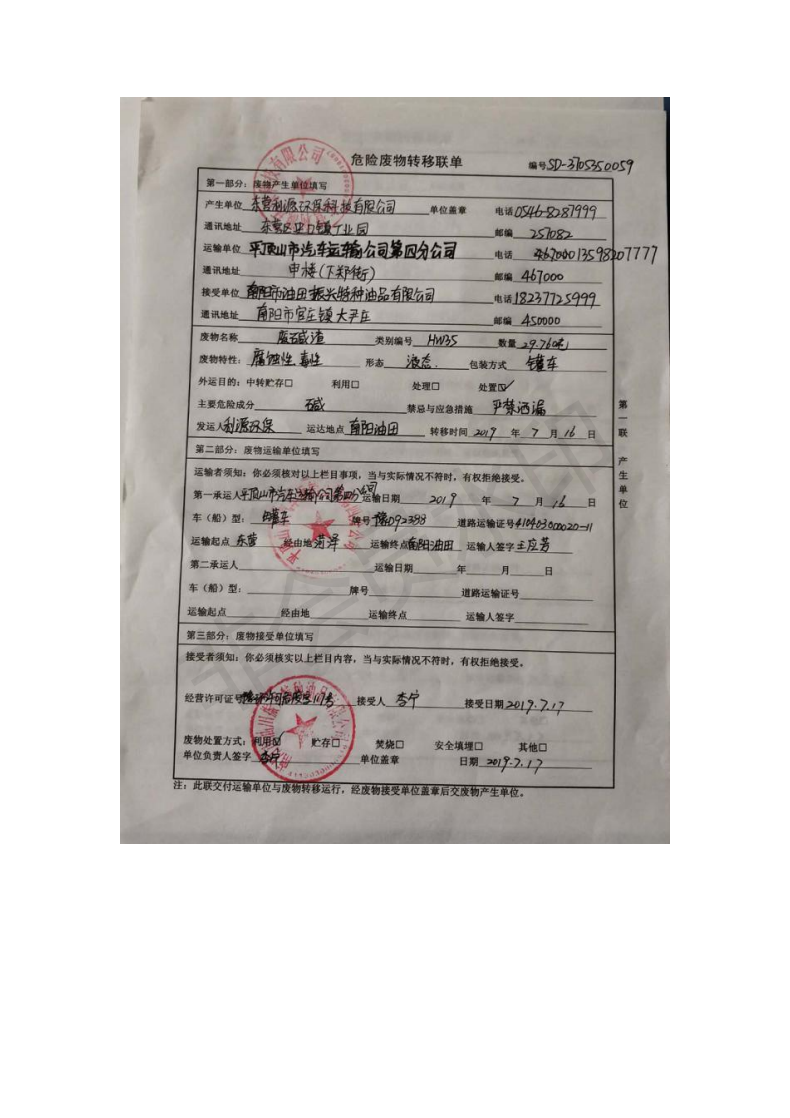 危险废物转移联单 编号SD-3705350059
第一部分：废物产生单位填写
产生单位 东营利源环保科技有限公司 单位盖章 电话0546-8287999
通讯地址 东营区史口镇工业园 邮编 257082
运输单位 平顶山市汽车运输公司第四分公司 电话 46700013598207777
通讯地址 申楼(下郑街) 邮编 467000
接受单位 南阳市油田振兴特种油品有限公司 电话18237725999
通讯地址 南阳市官庄镇大尹庄 邮编 450000
废物名称 废碱渣 类别编号 HW35 数量 29.760吨
废物特性：腐蚀性 毒性 形态 液态. 包装方式 罐车
外运目的：中转贮存□ 利用□ 处理□ 处置☑
主要危险成分 碱 禁忌与应急措施 严禁洒漏
发运人利源环保 运达地点 南阳油田 转移时间 2019 年 7 月 16 日
第二部分：废物运输单位填写
运输者须知：你必须核对以上栏目事项，当与实际情况不符时，有权拒绝接受。
第一承运人平顶山市汽车运输公司第四分公司 运输日期 2019 年 7 月 16 日
车（船）型： 罐车 牌号 豫D92388 道路运输证号410403000020-11
运输起点 东营 经由地 菏泽 运输终点 南阳油田 运输人签字 王应芳
第二承运人 运输日期 年 月 日
车（船）型： 牌号 道路运输证号
运输起点 经由地 运输终点 运输人签字
第三部分：废物接受单位填写
接受者须知：你必须核实以上栏目内容，当与实际情况不符时，有权拒绝接受。
经营许可证号 许可危废 117号 接受人 李宁 接受日期2019.7.17
废物处置方式：利用☑ 贮存□ 焚烧□ 安全填埋□ 其他□
单位负责人签字 李宁 单位盖章 日期 2019.7.17
注：此联交付运输单位与废物转移运行，经废物接受单位盖章后交废物产生单位。
第一联 产生单位